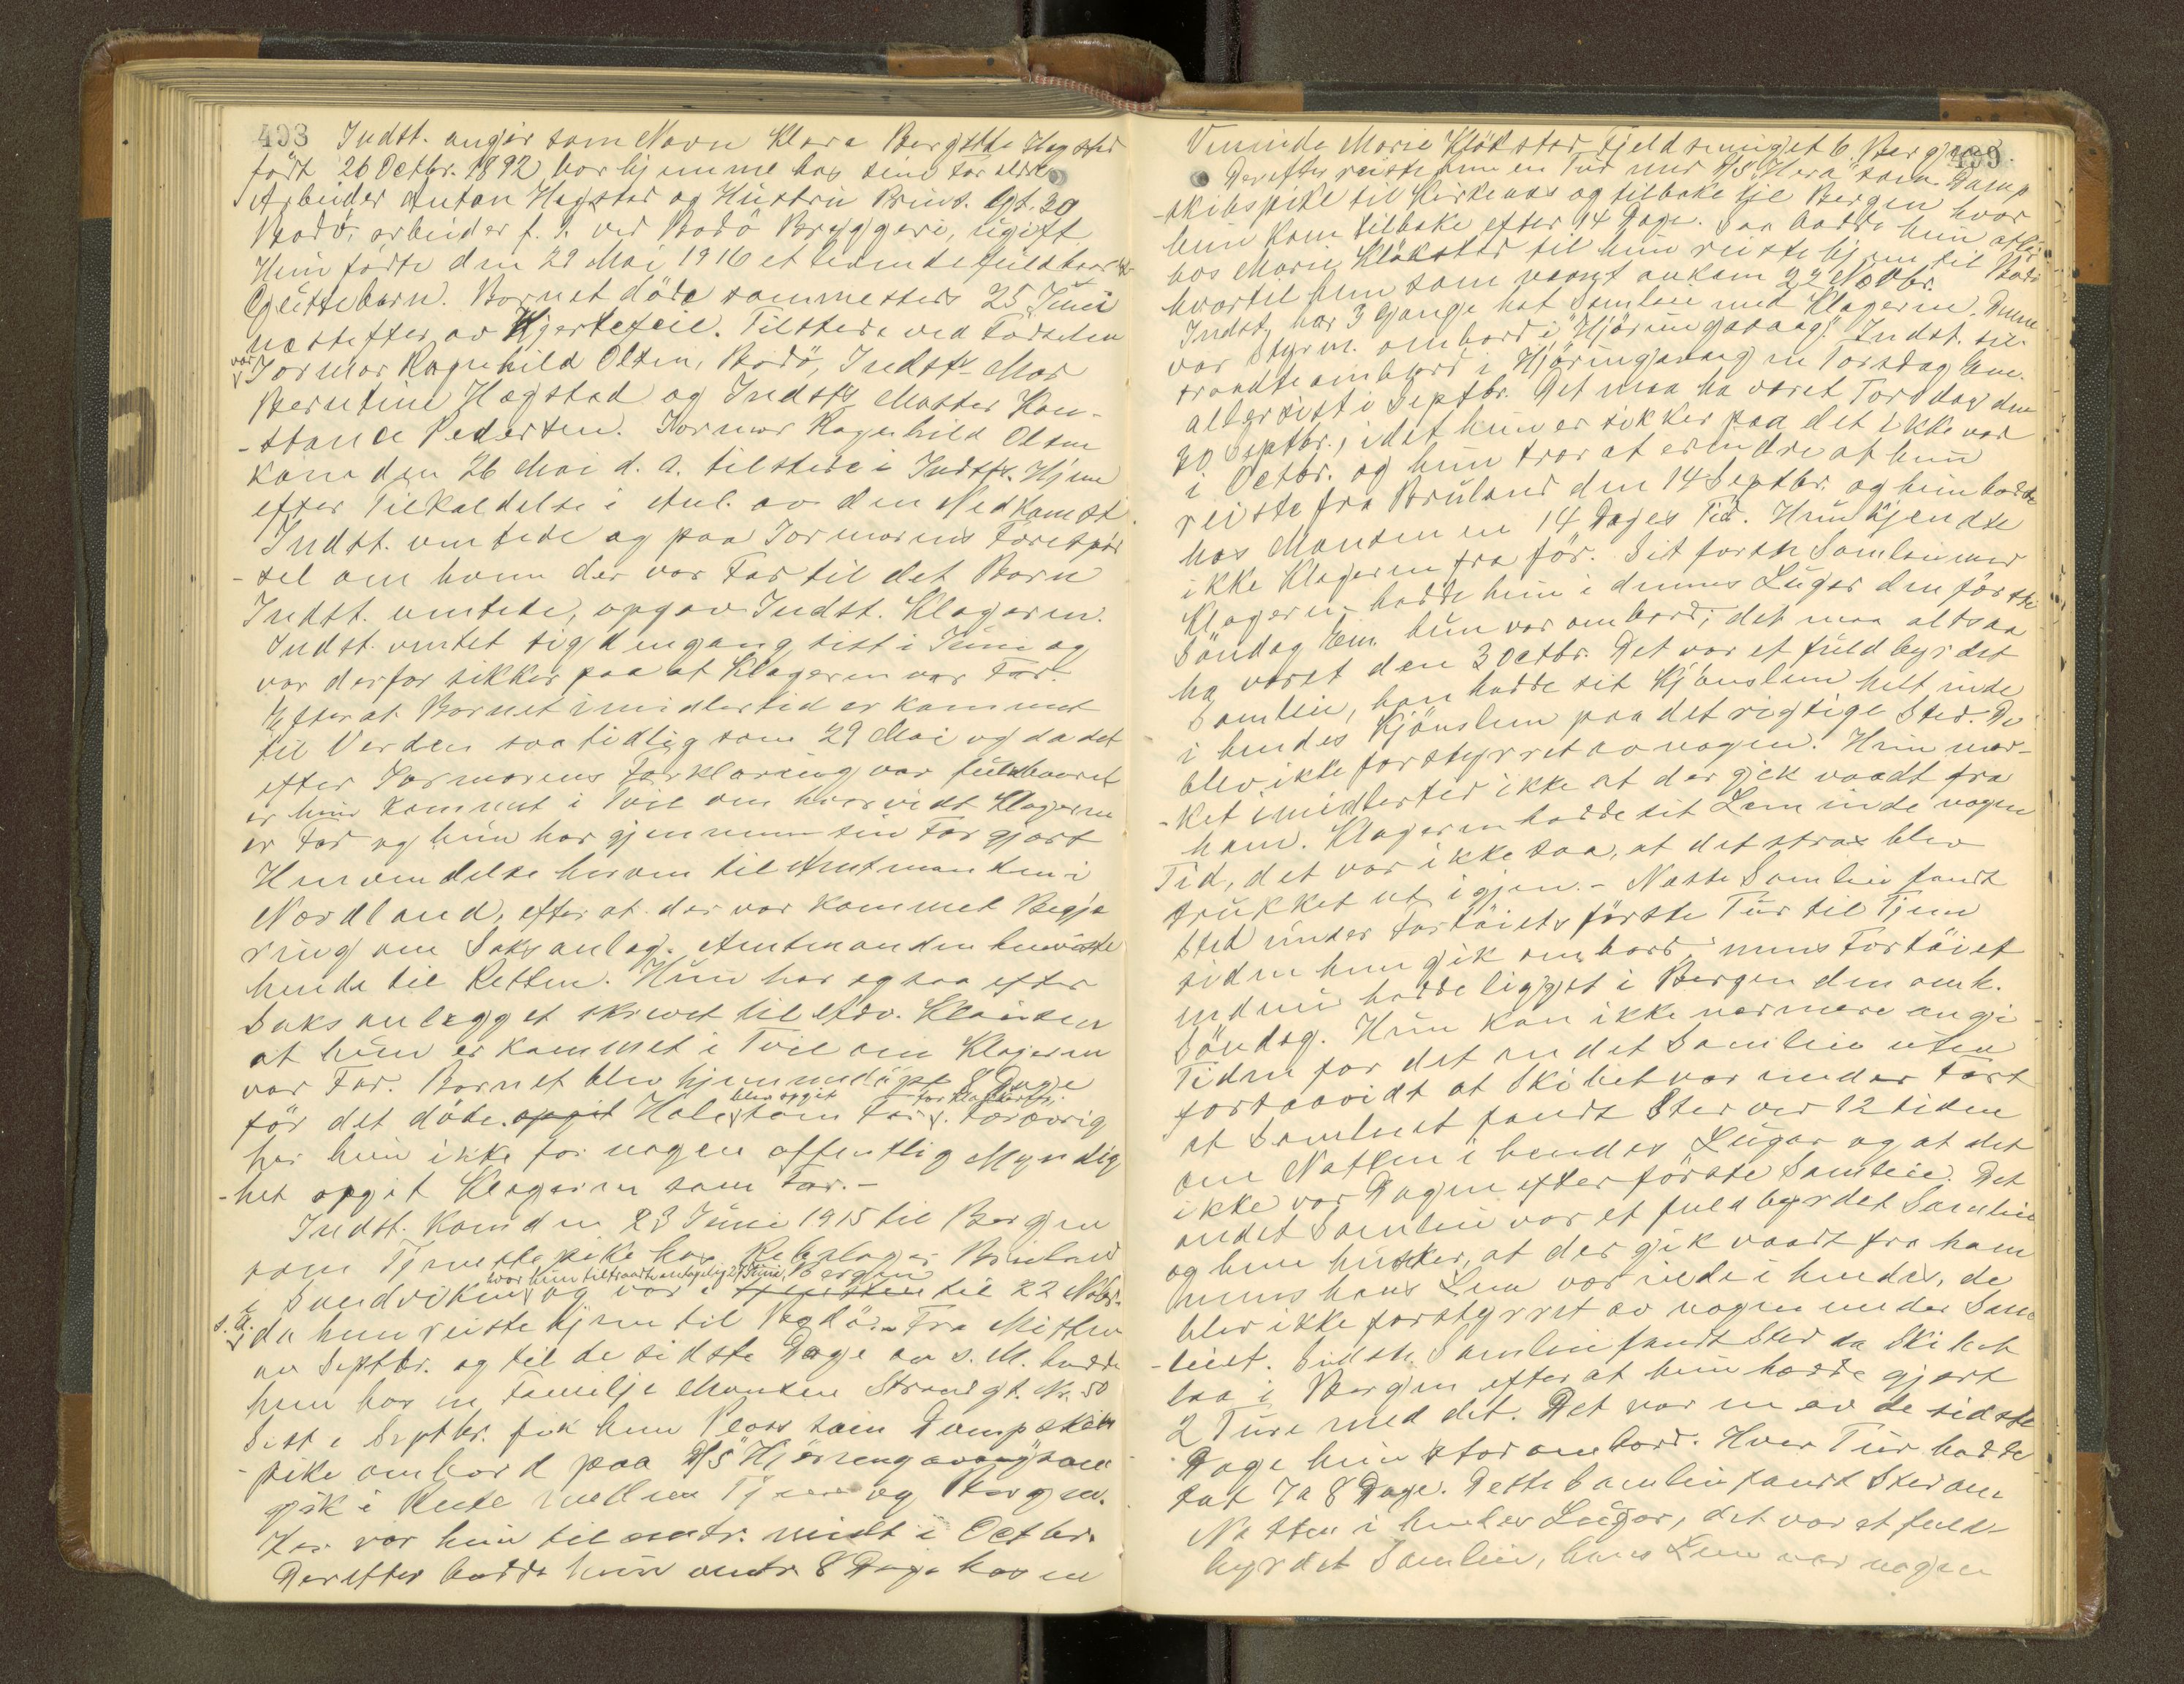 493 Indst. angir som Navn Klara Bergitte Hagstad
født 26 Octbr. 1892, bor hjemme hos sine Foreldre
Arbeider Anton Hagstad og Hustru Prins. Gt. 30
Bodö, arbeider f. T. ved Bodö Bryggeri, ugift
Hun fødte den 29 Mai 1916 et levende fuldbaaret
Güttebarn. Barnet döde sammesteds 25 Juni
næstefter av Hjertefeil. Tilstede ved Fødselen
var Jormor Ragnhild Olsen, Bodö, Indsts Mor
Berntine Hagstad og Indsts Moster Kon-
-stance Pedersen. Jormor Ragnhild Olsen
kom den 26 Mai d. A. tilstede i Indsts. Hjem
efter Tilkaldelse i Anl. av den Nedkomst
Indst. ventede og paa Jormorens Forespør
-sel om hvem der var Far til det Barn
Indst. ventede, opgav Indst. Klageren.
Indst. ventet sig dengang sist i Juni og
var derfor sikker paa at Klageren var Far.
Efterat Barnet imidlertid er kommet
til Verden saa tidlig som 29 Mai og da det
efter Jormorens Forklaring var fuldbaaret
er hun kommet i Tvil om hvorvidt Klageren
er Far og hun har gjennem sin Far gjort
Henvendelse herom til Amtmanden i
Nordland, efter at der var kommet Begjæ
ring om Saksanlæg. Amtmanden henviste
hende til Retten. Hun har ogsaa efter
Saksanlegget skrevet til Adv. Klausen
at hun er kommet i Tvil om Klageren
var Far. Barnet blev hjemmedöpt 8 Dage
för det döde. opgit blev opgit som Far. Forøvrig
har hun ikke for nogen offentlig Myndig
-het opgit Klageren som Far.-
Indst. kom den 23 Juni 1915 til Bergen
som Tjenestepike hos Rebslager Bruland
i Sandviken, hvor hun tiltraadte antagelig 27 Juni, Bergen og var i til 22 Nobr.
s. A. da hun reiste hjem til Bodö.- Fra Midten
av Septbr. og til de sidste Dage av s. M. bodde
hun hos en Familje Monsen Strandgt. Nr. 50
Sist i Septbr. fik hun Plass som Dampskibs
-pike ombord paa D/S "Hjörungavaag" som
gik i Rute mellem Tjeme og Bergen.
Her var hun til omtr. midt i Octbr.
Derefter bodde hun omtr. 8 Dage hos en
499
Veninde Marie Kløkstad Fjeldsmuget 6. Bergen.
Derefter reiste hun en Tur med D/S "Hera" som Damp
-skibspike til Kirkenes og tilbake til Bergen hvor
hun kom tilbake efter 14 Dage. Saa bodde hun atter
hos Marie Kløkstad til hun reiste hjem til Bodö
hvortil hun som nævnt ankom 22 Novbr.
Indst. har 3 Gange hat Samleie med Klageren. Denne
var Styrm. ombord i "Hjörungavaag". Indst. til-
traadte ombord i Hjörungavaag en Torsdag Em.
allersist i Septbr. Det maa ha været Torsdag den
30 Septbr., idet hun er sikker paa det ikke var
i Octbr. og hun tror at erindre at hun
reiste fra Bruland den 14 Septbr. og hun bodde
hos Monsen en 14 Dages Tid. Hun kjendte
ikke Klageren fra för. Sit første Samleie med
Klageren hadde hun i dennes Lugar den förste
Söndag Em. hun var ombord; det maa altsaa
ha været den 3 Octbr. Det var et fuldbyrdet
Samleie, han hadde sit Kjönslem helt inde
i hendes Kjönslem paa det rigtige Sted. De
blev ikke forstyrret av nogen. Hun mær-
-ket imidlertid ikke at der gik vaadt fra
ham. Klageren hadde sit Lem inde nogen
Tid, det var ikke saa, at det strax blev
trukket ut igjen.- Næste Samleie fandt
Sted under Fartöiets förste Tur til Tjeme
siden hun gik ombord, mens Fartöiet
endnu hadde ligget i Bergen den omh.
Söndag. Hun kan ikke nærmere angi
Tiden for det andet Samleie uten
forsaavidt at Skibet var under Fart
at Samleiet fandt Sted ved 12 tiden
om Natten i hendes Lugar og at det
ikke var Dagen efter förste Samleie. Det
andet Samleie var et fuldbyrdet Samleie
og hun husker, at der gik vaadt fra ham
mens hans Lem var inde i hendes, de
blev ikke forstyrret av nogen under Sam
-leiet. Sidste Samleie fandt Sted da Skibet
laa i Bergen efter at hun hadde gjort
2 Ture med det. Det var en av de sidste
Dage hun stod ombord. Hver Tur hadde
tat 7 a 8 Dage. Dette Samleie fandt Sted om
Natten i hendes Lugar, det var et fuld-
byrdet Samleie, hans Lem var nogen